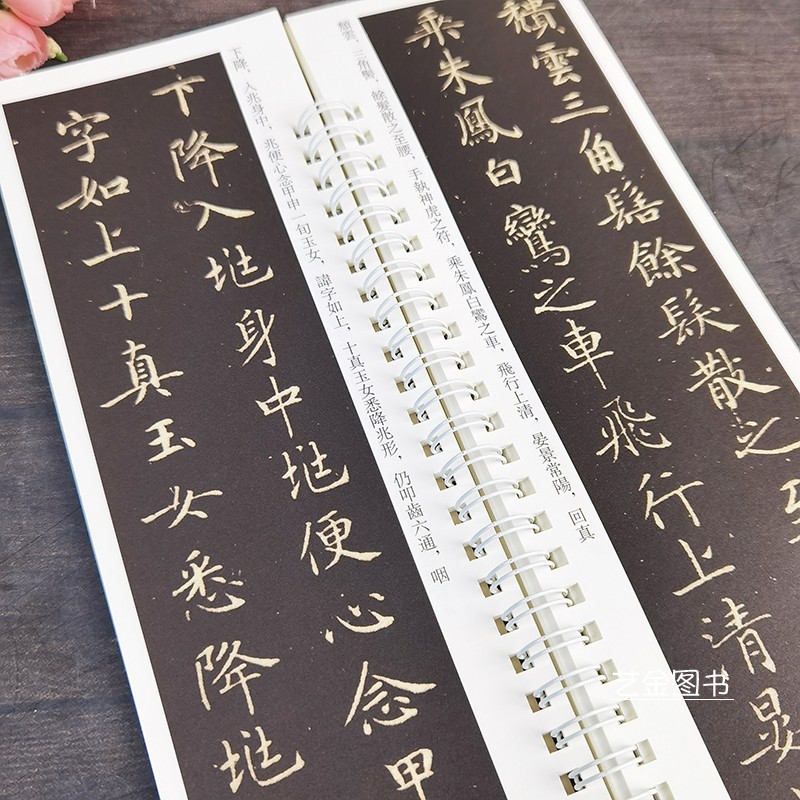 穨雲三角髻餘髮散之至
乘朱鳳白鸞之車飛行上清晏
頹雲，三角髻，餘髮散之至腰，手執神虎之符，乘朱鳳白鸞之車，飛行上清，晏景常陽，回真
下降，入兆身中，兆便心念甲申一旬玉女，諱字如上，十真玉女悉降兆形，仍叩齒六通，咽
下降入垗身中垗便心念甲
字如上十真玉女悉降垗
艺金图书